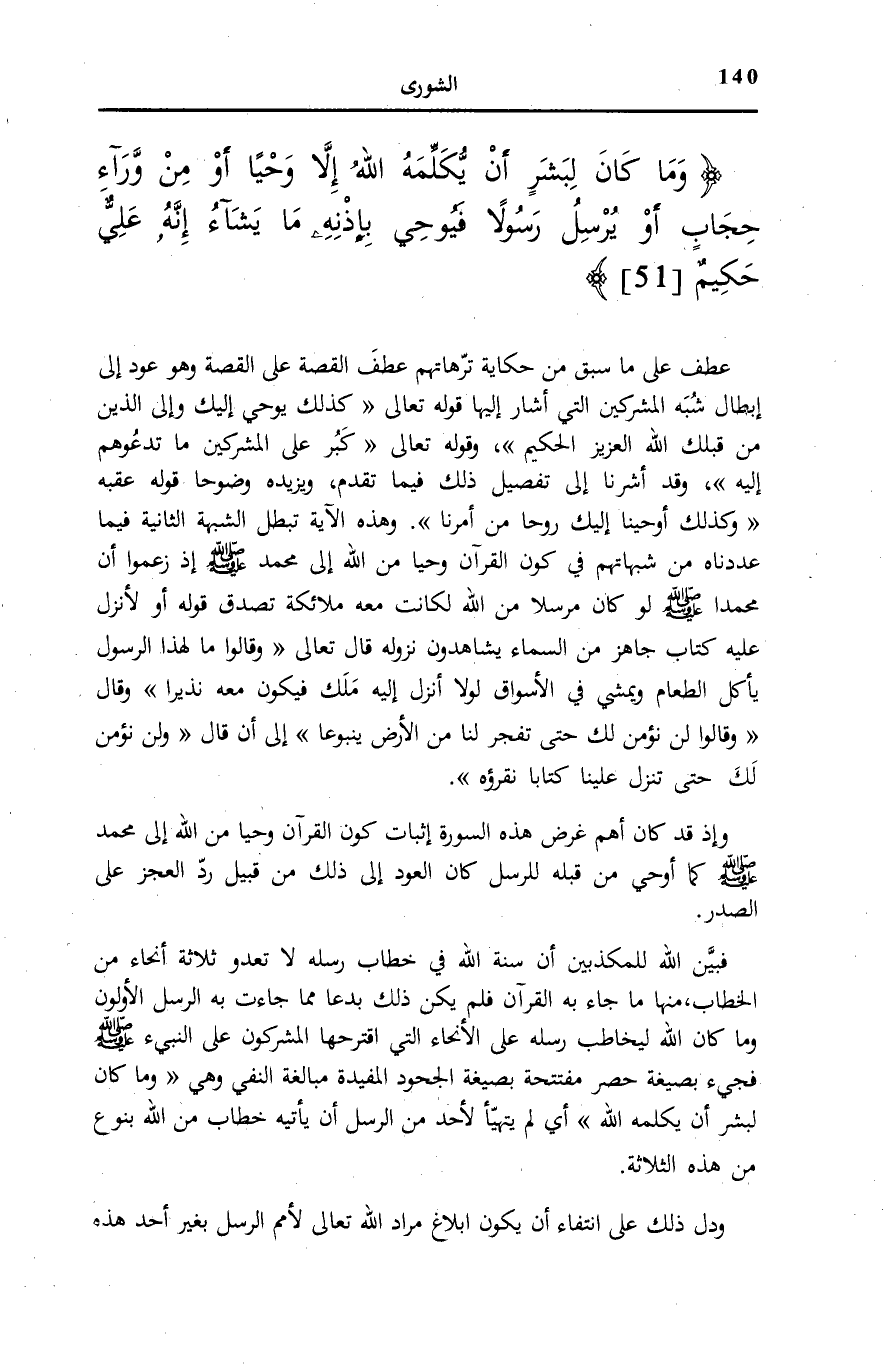 140
الشورى
﴿ وَمَا كَانَ لِبَشَرٍ أَنْ يُّكَلِّمَهُ اللهُ إِلَّا وَحْيًا أَوْ مِنْ وَّرَآءِ
حِجَابٍ أَوْ يُرْسِلُ رَسُولًا فَيُوحِي بِإِذْنِهِۦ مَا يَشَآءُ إِنَّهُۥ عَلِيٌّ
حَكِيمٌ [51] ﴾
عطف على ما سبق من حكاية ترّهاتهم عطفَ القصة على القصة وهو عود إلى
إبطال شُبَه المشركين التي أشار إليها قوله تعالى « كذلك يوحي إليك وإلى الذين
من قبلك الله العزيز الحكيم »، وقوله تعالى « كَبُر على المشركين ما تدعُوهم
إليه »، وقد أشرنا إلى تفصيل ذلك فيما تقدم، ويزيده وضوحا قوله عقبه
« وكذلك أوحينا إليك روحا من أمرنا ». وهذه الآية تبطل الشبهة الثانية فيما
عددناه من شبهاتهم في كون القرآن وحيا من الله إلى محمد ﷺ إذ زعموا أن
محمدا ﷺ لو كان مرسلا من الله لكانت معه ملائكة تصدق قوله أو لأنزل
عليه كتاب جاهز من السماء يشاهدون نزوله قال تعالى « وقالوا ما لهذا الرسول
يأكل الطعام ويمشي في الأسواق لولا أنزل إليه مَلَك فيكون معه نذيرا » وقال
« وقالوا لن نؤمن لك حتى تفجر لنا من الأرض ينبوعا » إلى أن قال « ولن نؤمن
لَكَ حتى تنزل علينا كتابا نقرؤه ».
وإذ قد كان أهم غرض هذه السورة إثبات كون القرآن وحيا من الله إلى محمد
ﷺ كما أوحي من قبله للرسل كان العود إلى ذلك من قبيل ردّ العجز على
الصدر.
فبيَّن الله للمكذبين أن سنة الله في خطاب رسله لا تعدو ثلاثة أنحاء من
الخطاب،منها ما جاء به القرآن فلم يكن ذلك بدعا مما جاءت به الرسل الأولون
وما كان الله ليخاطب رسله على الأنحاء التي اقترحها المشركون على النبيء ﷺ
فجيء بصيغة حصر مفتتحة بصيغة الجحود المفيدة مبالغة النفي وهي « وما كان
لبشر أن يكلمه الله » أي لم يتهيّأ لأحد من الرسل أن يأتيه خطاب من الله بنوع
من هذه الثلاثة.
ودل ذلك على انتفاء أن يكون ابلاغ مراد الله تعالى لأمم الرسل بغير أحد هذه